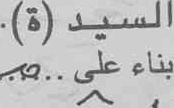 السيد (ة).
بناء على ..